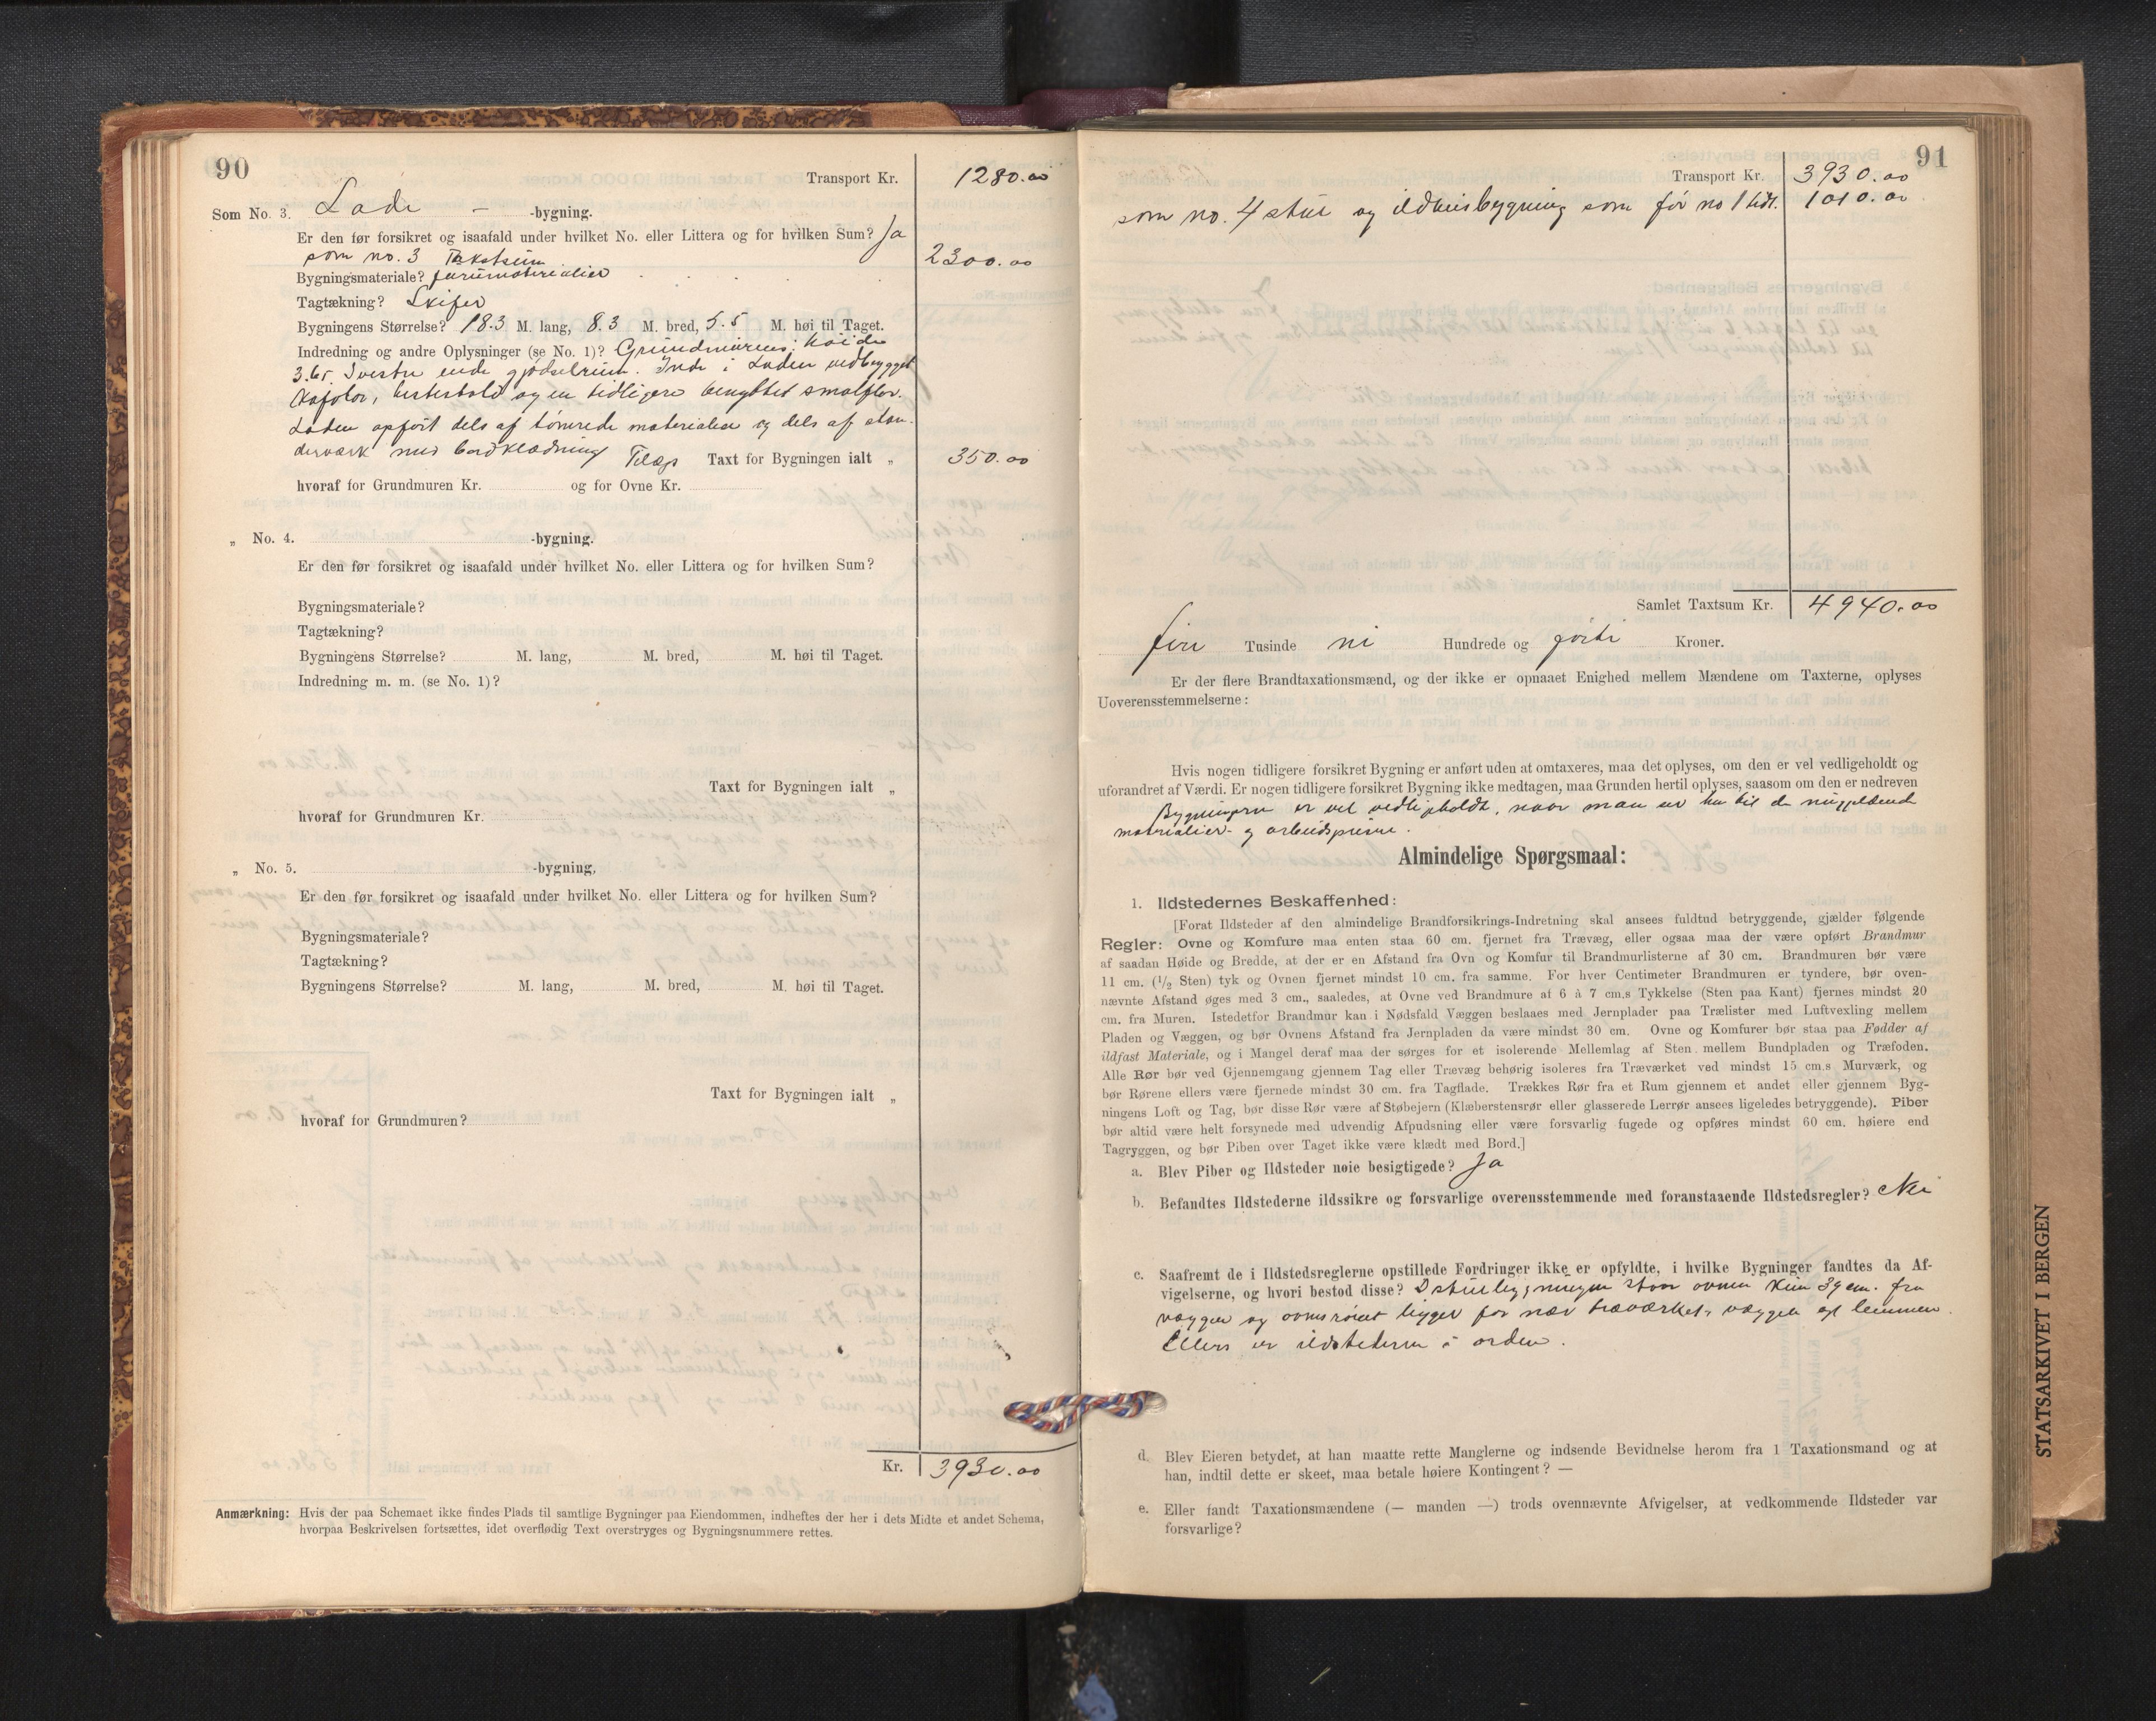 90
Transport Kr. 1280.00
Som No. 3. Lade - -bygning.
Er den før forsikret og isaafald under hvilket No. eller Littera og for hvilken Sum? Ja
som no. 3 Takstsum 2300.00
Bygningsmateriale? furumaterialier
Tagtækning? Skifer
Bygningens Størrelse? 18.3 M. lang, 8.3 M. bred, 5.5 M. høi til Taget.
Indredning og andre Oplysninger (se No. 1)? Grundmurens: høide
3.65. I vestre ende gjødselrum. Inde i Laden vedbygget
kofolor, hestestald og en tidligere benyttet smalflor.
Laden opført dels af tømrede materialier og dels af stan-
derværk med bordklædning Tillæg Taxt for Bygningen ialt „ 350.00
hvoraf for Grundmuren Kr. og for Ovne Kr.
„ No. 4. -bygning.
Er den før forsikret og isaafald under hvilket No. eller Littera og for hvilken Sum?
Bygningsmateriale?
Tagtækning?
Bygningens Størrelse? M. lang, M. bred, M. høi til Taget.
Indredning m. m. (se No. 1)?
Taxt for Bygningen ialt „
hvoraf for Grundmuren Kr.
„ No. 5. -bygning.
Er den før forsikret og isaafald under hvilket No. eller Littera og for hvilken Sum?
Bygningsmateriale?
Tagtækning?
Bygningens Størrelse? M. lang, M. bred, M. høi til Taget.
Taxt for Bygningen ialt „
hvoraf for Grundmuren?
Kr. 3930.00
Anmærkning: Hvis der paa Schemaet ikke findes Plads til samtlige Bygninger paa Eiendommen, indheftes der her i dets Midte et andet Schema,
hvorpaa Beskrivelsen fortsættes, idet overflødig Text overstryges og Bygningsnummere rettes.
91
Transport Kr. 3930.00
som no. 4 stue og ildhusbygning som før no 1 tidl. 1010.00
Samlet Taxtsum Kr. 4940.00
fire Tusinde ni Hundrede og førti Kroner.
Er der flere Brandtaxationsmænd, og der ikke er opnaaet Enighed mellem Mændene om Taxterne, oplyses
Uoverensstemmelserne:
Hvis nogen tidligere forsikret Bygning er anført uden at omtaxeres, maa det oplyses, om den er vel vedligeholdt og
uforandret af Værdi. Er nogen tidligere forsikret Bygning ikke medtagen, maa Grunden hertil oplyses, saasom om den er nedreven
Bygningerne er vel vedligeholdt, naar man ser hen til de nugjeldende
materialier- og arbeidspriser.
Almindelige Spørgsmaal:
1. Ildstedernes Beskaffenhed:
[Forat Ildsteder af den almindelige Brandforsikrings-Indretning skal ansees fuldtud betryggende, gjælder følgende
Regler: Ovne og Komfure maa enten staa 60 cm. fjernet fra Trævæg, eller ogsaa maa der være opført Brandmur
af saadan Høide og Bredde, at der er en Afstand fra Ovn og Komfur til Brandmurlisterne af 30 cm. Brandmuren bør være
11 cm. (1/2 Sten) tyk og Ovnen fjernet mindst 10 cm. fra samme. For hver Centimeter Brandmuren er tyndere, bør oven-
nævnte Afstand øges med 3 cm., saaledes, at Ovne ved Brandmure af 6 à 7 cm.s Tykkelse (Sten paa Kant) fjernes mindst 20
cm. fra Muren. Istedetfor Brandmur kan i Nødsfald Væggen beslaaes med Jernplader paa Trælister med Luftvexling mellem
Pladen og Væggen, og bør Ovnens Afstand fra Jernpladen da være mindst 30 cm. Ovne og Komfurer bør staa paa Fødder af
ildfast Materiale, og i Mangel deraf maa der sørges for et isolerende Mellemlag af Sten mellem Bundpladen og Træfoden.
Alle Rør bør ved Gjennemgang gjennem Tag eller Trævæg behørig isoleres fra Træværket ved mindst 15 cm.s Murværk, og
bør Rørene ellers være fjernede mindst 30 cm. fra Tagflade. Trækkes Rør fra et Rum gjennem et andet eller gjennem Byg-
ningens Loft og Tag, bør disse Rør være af Støbejern (Klæberstensrør eller glasserede Lerrør ansees ligeledes betryggende). Piber
bør altid være helt forsynede med udvendig Afpudsning eller være forsvarlig fugede og opføres mindst 60 cm. høiere end
Tagryggen, og bør Piben over Taget ikke være klædt med Bord.]
a. Blev Piber og Ildsteder nøie besigtigede? Ja
b. Befandtes Ildstederne ildssikre og forsvarlige overensstemmende med foranstaaende Ildstedsregler? Nei
c. Saafremt de i Ildstedsreglerne opstillede Fordringer ikke er opfyldte, i hvilke Bygninger fandtes da Af-
vigelserne, og hvori bestod disse? I stuebygningen staar ovnen kun 39 cm. fra
væggen og ovnsrøret ligger for nær træværket, væggen og lemmen.
Ellers er ildstederne i orden.
d. Blev Eieren betydet, at han maatte rette Manglerne og indsende Bevidnelse herom fra 1 Taxationsmand og at
han, indtil dette er skeet, maa betale høiere Kontingent? —
e. Eller fandt Taxationsmændene (— manden —) trods ovennævnte Afvigelser, at vedkommende Ildsteder var
forsvarlige?
STATSARKIVET I BERGEN